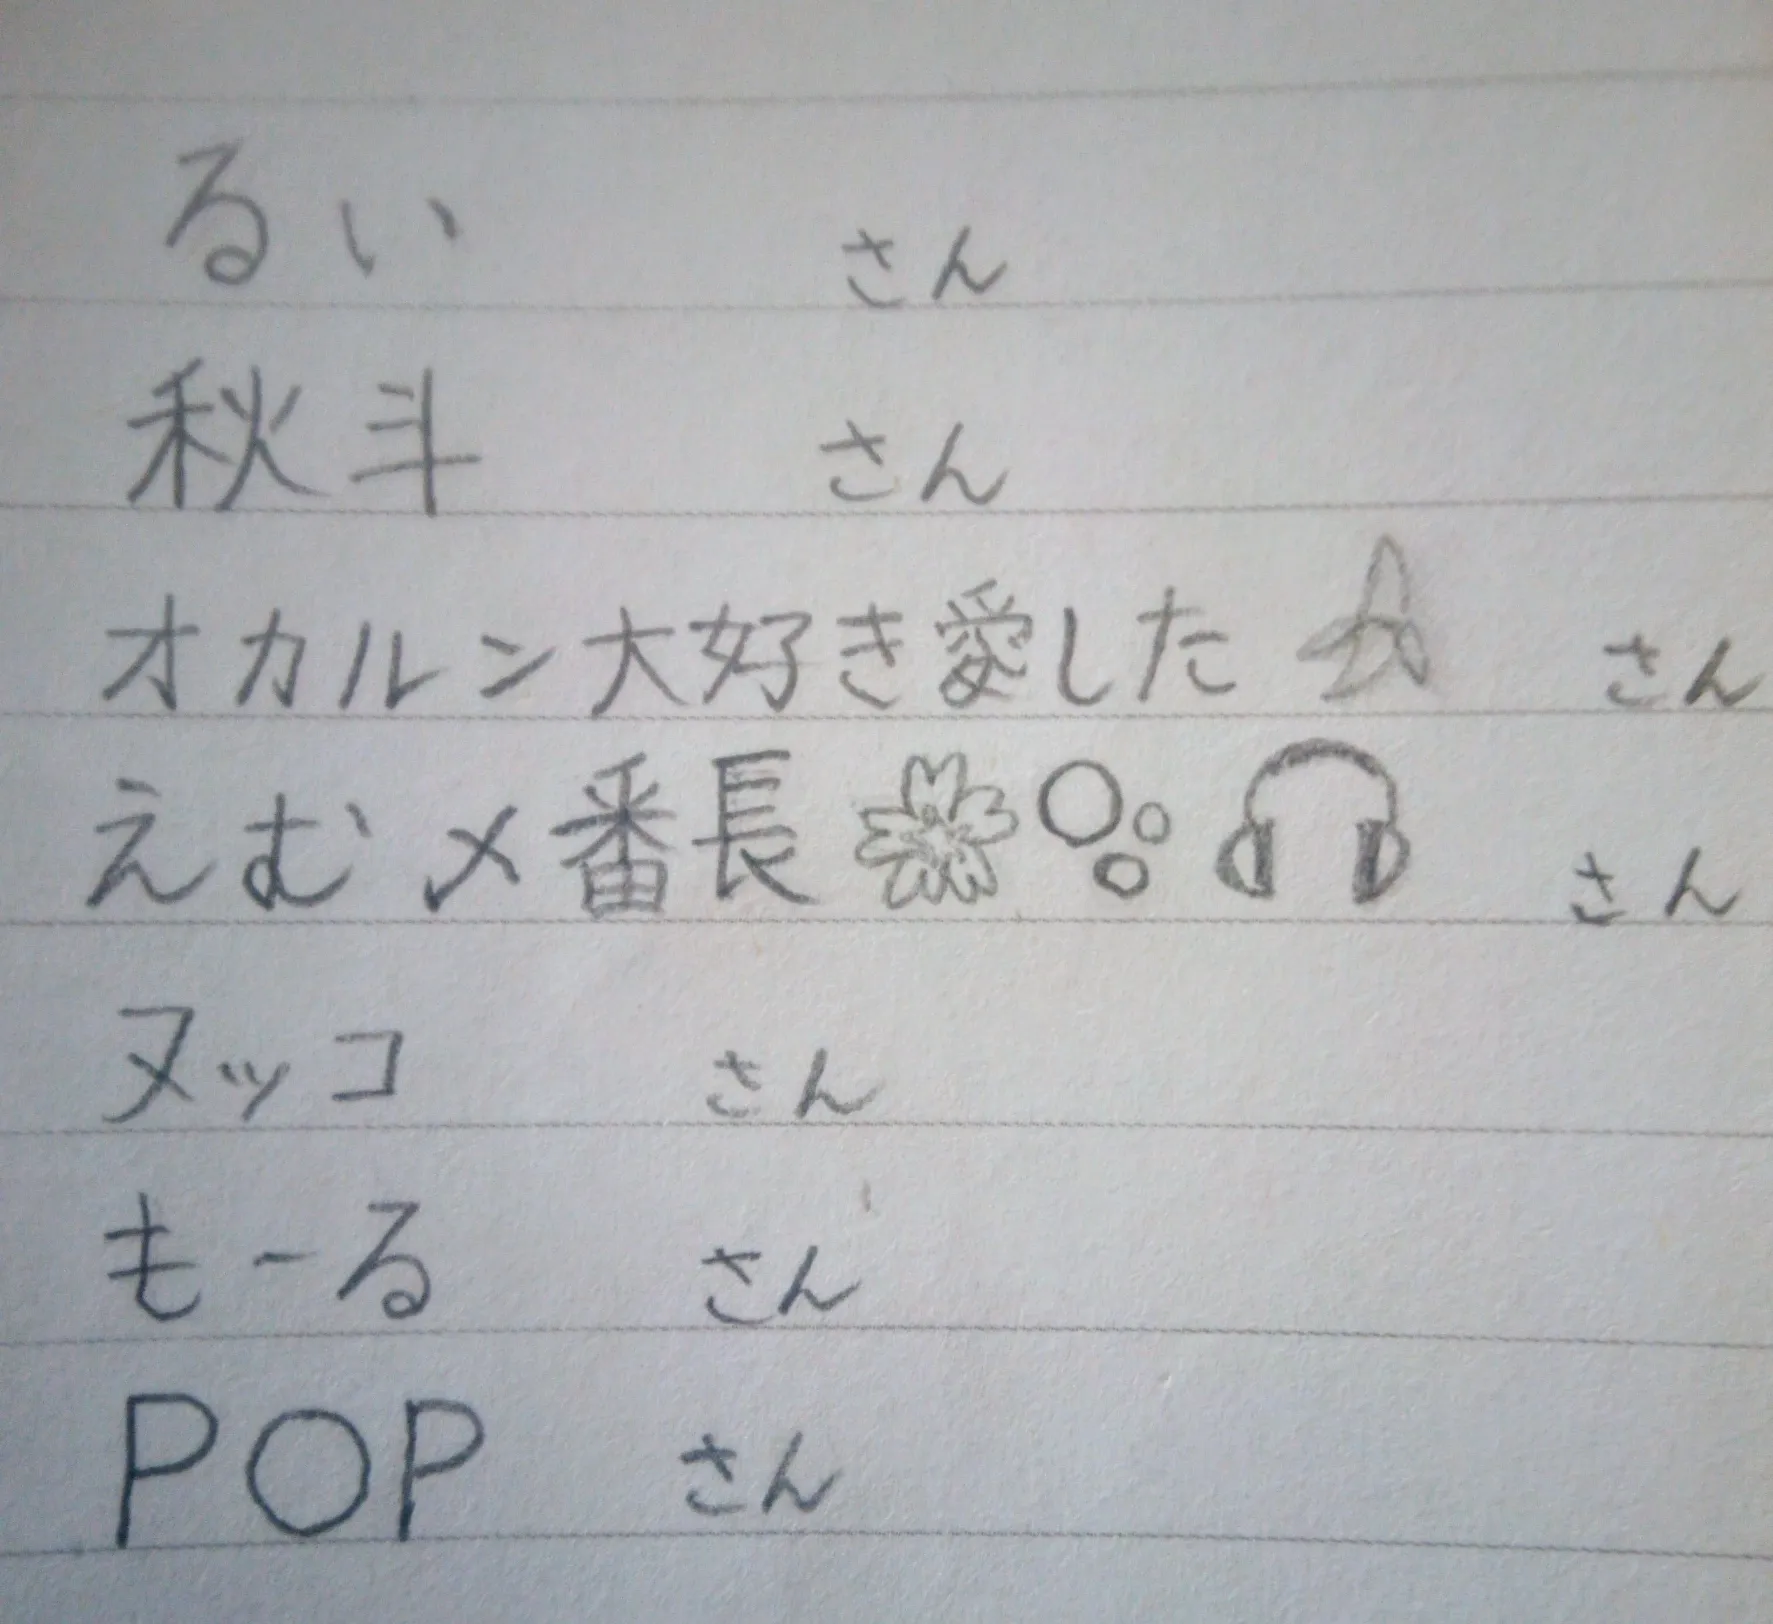 るい さん
秋斗 さん
オカルン大好き愛した さん
えむ〆番長🌸🫧🎧 さん
ヌッコ さん
もーる さん
POP さん